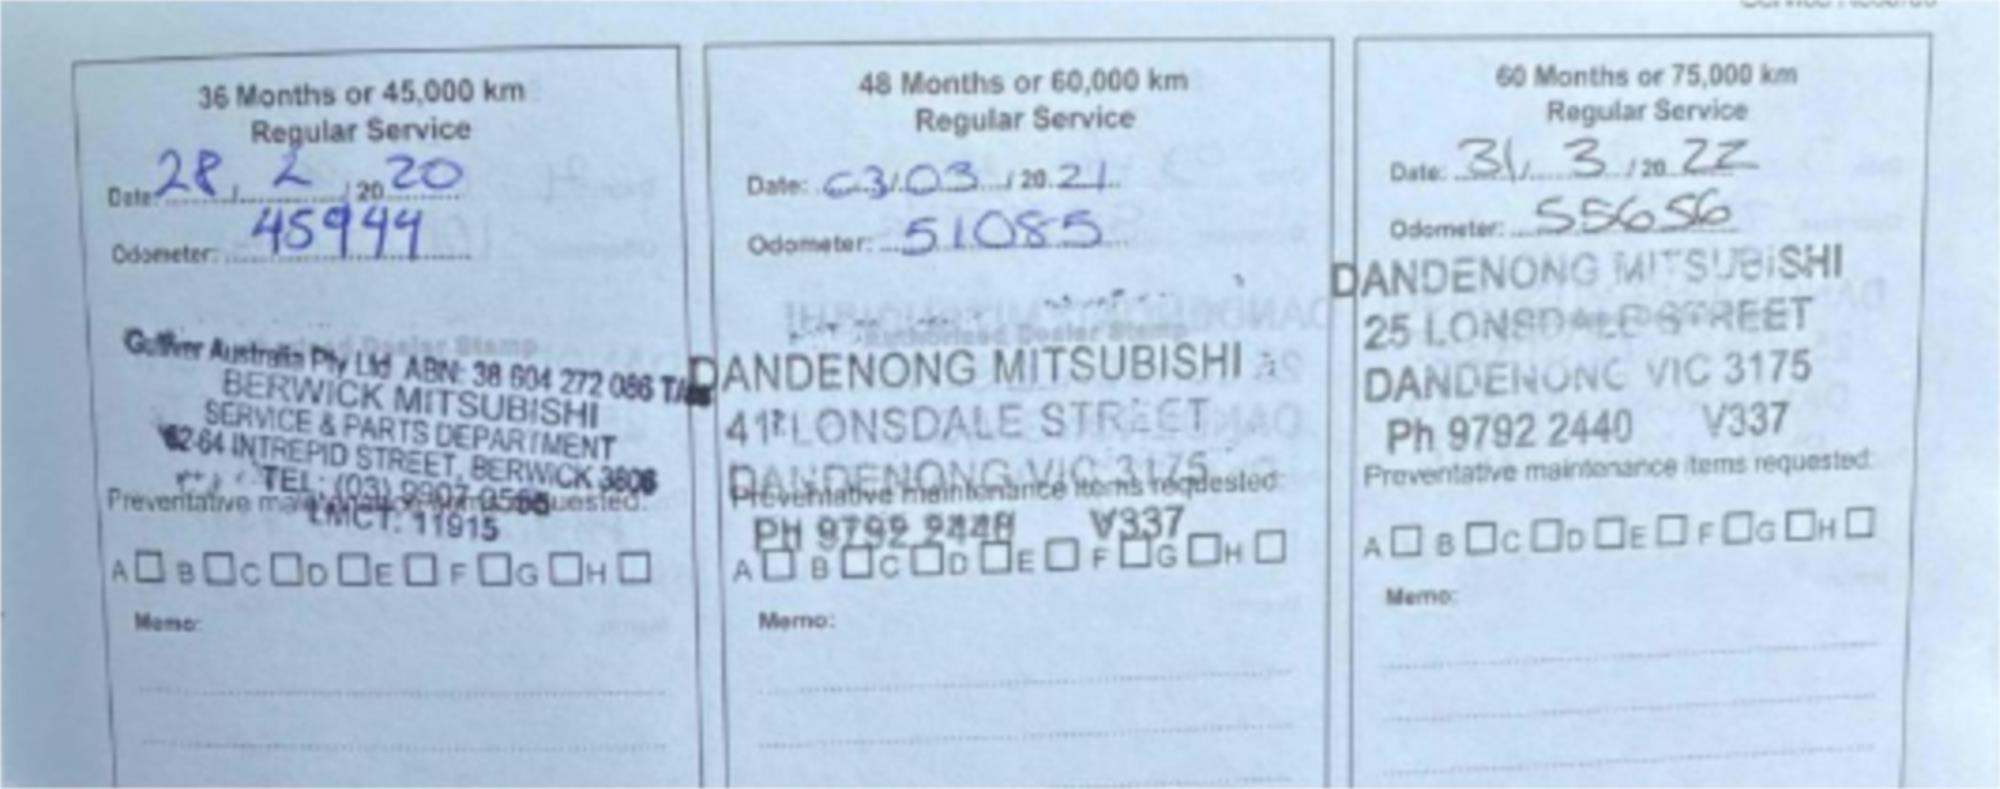 36 Months or 45,000 km
Regular Service
Date: 28 / 2 / 20 20
Odometer: 45944
Gulliver Australia Pty Ltd ABN: 38 604 272 086 T/AS
BERWICK MITSUBISHI
SERVICE & PARTS DEPARTMENT
62-64 INTREPID STREET, BERWICK 3806
TEL: (03)
LMCT: 11915
Preventative maintenance items requested:
A B C D E F G H
Memo:
48 Months or 60,000 km
Regular Service
Date: 03/03 / 20 21
Odometer: 51085
Authorised Dealer Stamp
DANDENONG MITSUBISHI
LONSDALE STREET
DANDENONG VIC 3175
Preventative maintenance items requested:
PH 9792 V337
A B C D E F G H
Memo:
60 Months or 75,000 km
Regular Service
Date: 31 / 3 / 20 22
Odometer: 55656
DANDENONG MITSUBISHI
25 LONSDALE STREET
DANDENONG VIC 3175
Ph 9792 2440 V337
Preventative maintenance items requested:
A B C D E F G H
Memo: